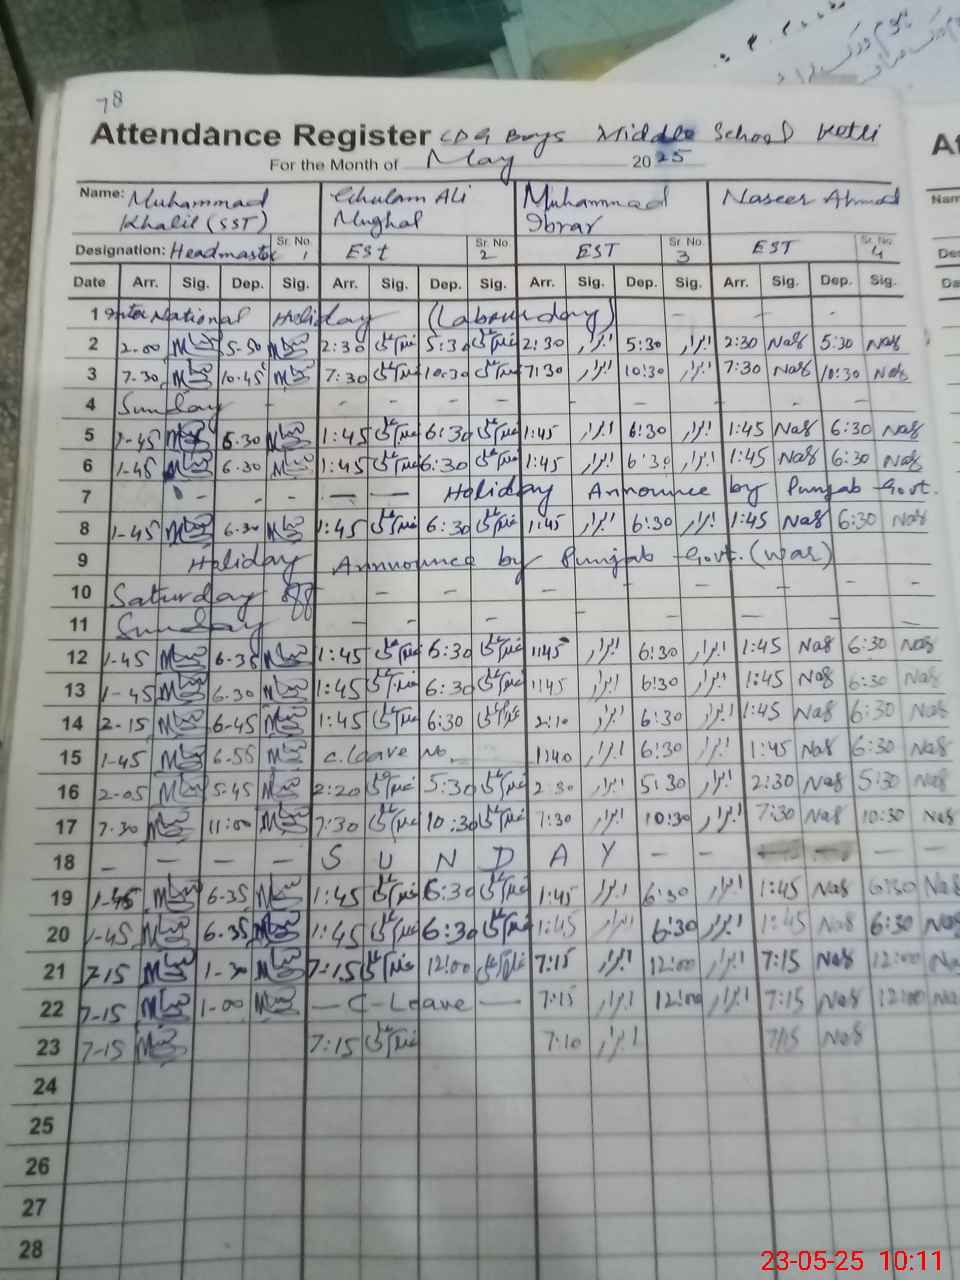 78
Attendance Register CDG Boys Middle School Kotli
For the Month of May 2025
Name: Muhammad Khalil (SST) Ghulam Ali Mughal Muhammad Ibrar Naseer Ahmad
Designation: Headmaster Sr. No. 1 EST Sr. No. 2 EST Sr. No. 3 EST Sr. No. 4
Date Arr. Sig. Dep. Sig. Arr. Sig. Dep. Sig. Arr. Sig. Dep. Sig. Arr. Sig. Dep. Sig.
1 International Holiday (Labour day) - - -
2 2-00 5-50 2:30 5:30 2:30 ابرار 5:30 ابرار 2:30 Nas 5:30 Nas
3 7-30 10-45 7:30 10:30 7:30 ابرار 10:30 ابرار 7:30 Nas 10:30 Nas
4 Sunday - - - - - - - - - -
5 1-45 6-30 1:45 6:30 1:45 ابرار 6:30 ابرار 1:45 Nas 6:30 Nas
6 1-45 6-30 1:45 6:30 1:45 ابرار 6:30 ابرار 1:45 Nas 6:30 Nas
7 - - - — — Holiday Announce by Punjab Govt.
8 1-45 6-30 1:45 6:30 1:45 ابرار 6:30 ابرار 1:45 Nas 6:30 Nas
9 Holiday Announce by Punjab Govt. (war)
10 Saturday - - - - - - - - -
11 Sunday - - - - - - - -
12 1-45 6-35 1:45 6:30 1:45 ابرار 6:30 ابرار 1:45 Nas 6:30 Nas
13 1-45 6-30 1:45 6:30 1:45 ابرار 6:30 ابرار 1:45 Nas 6:30 Nas
14 2-15 6-45 1:45 6:30 2:10 ابرار 6:30 ابرار 1:45 Nas 6:30 Nas
15 1-45 6-55 C.leave No. 1:40 ابرار 6:30 ابرار 1:45 Nas 6:30 Nas
16 2-05 5-45 2:20 5:30 2:30 ابرار 5:30 ابرار 2:30 Nas 5:30 Nas
17 7-30 11:00 7:30 10:30 7:30 ابرار 10:30 ابرار 7:30 Nas 10:30 Nas
18 — — — — S U N D A Y — — — —
19 1-45 6-35 1:45 6:30 1:45 ابرار 6:30 ابرار 1:45 Nas 6:30 Nas
20 1-45 6-35 1:45 6:30 1:45 ابرار 6:30 ابرار 1:45 Nas 6:30 Nas
21 7-15 1-30 7:15 12:00 7:15 ابرار 12:00 ابرار 7:15 Nas 12:00 Na
22 7-15 1-00 — C-Leave — 7:15 ابرار 12:00 ابرار 7:15 Nas 12:00 Na
23 7-15 7:15 7:10 ابرار 7:15 Nas
24
25
26
27
28
23-05-25 10:11